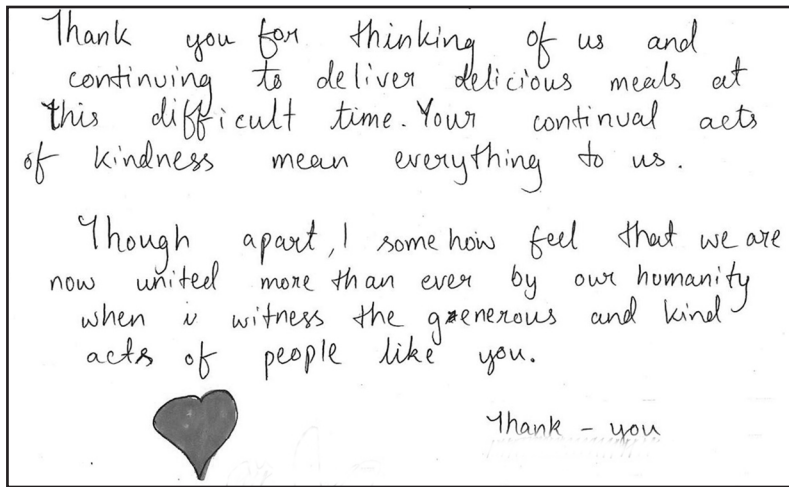 Thank you for thinking of us and
continuing to deliver delicious meals at
this difficult time. Your continual acts
of kindness mean everything to us.
Though apart, I some how feel that we are
now united more than ever by our humanity
when i witness the generous and kind
acts of people like you.
Thank - you